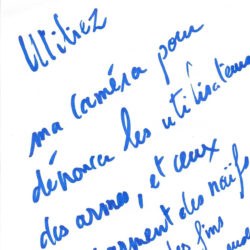 Utilisez
ma caméra pour
dénoncer les utilisateurs
des armes, et ceux
des naïfs
des fins